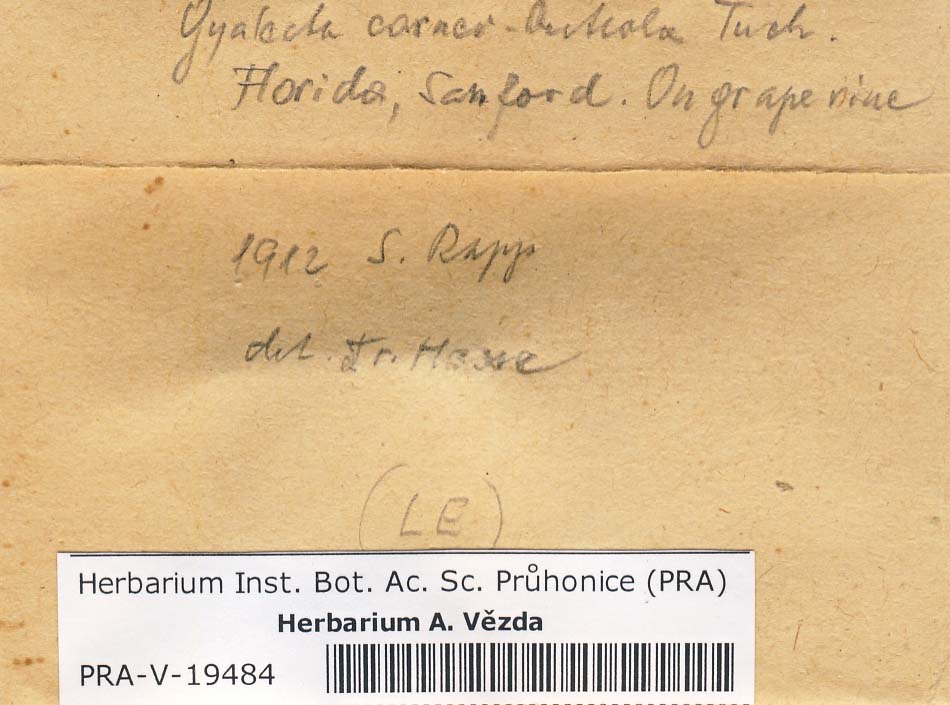 Gyalecta carneo-luteola Tuck.
Florida, Sanford. On grape vine
1912 S. Rapp
det. Dr. Hasse
(LE)
Herbarium Inst. Bot. Ac. Sc. Průhonice (PRA)
Herbarium A. Vězda
PRA-V-19484